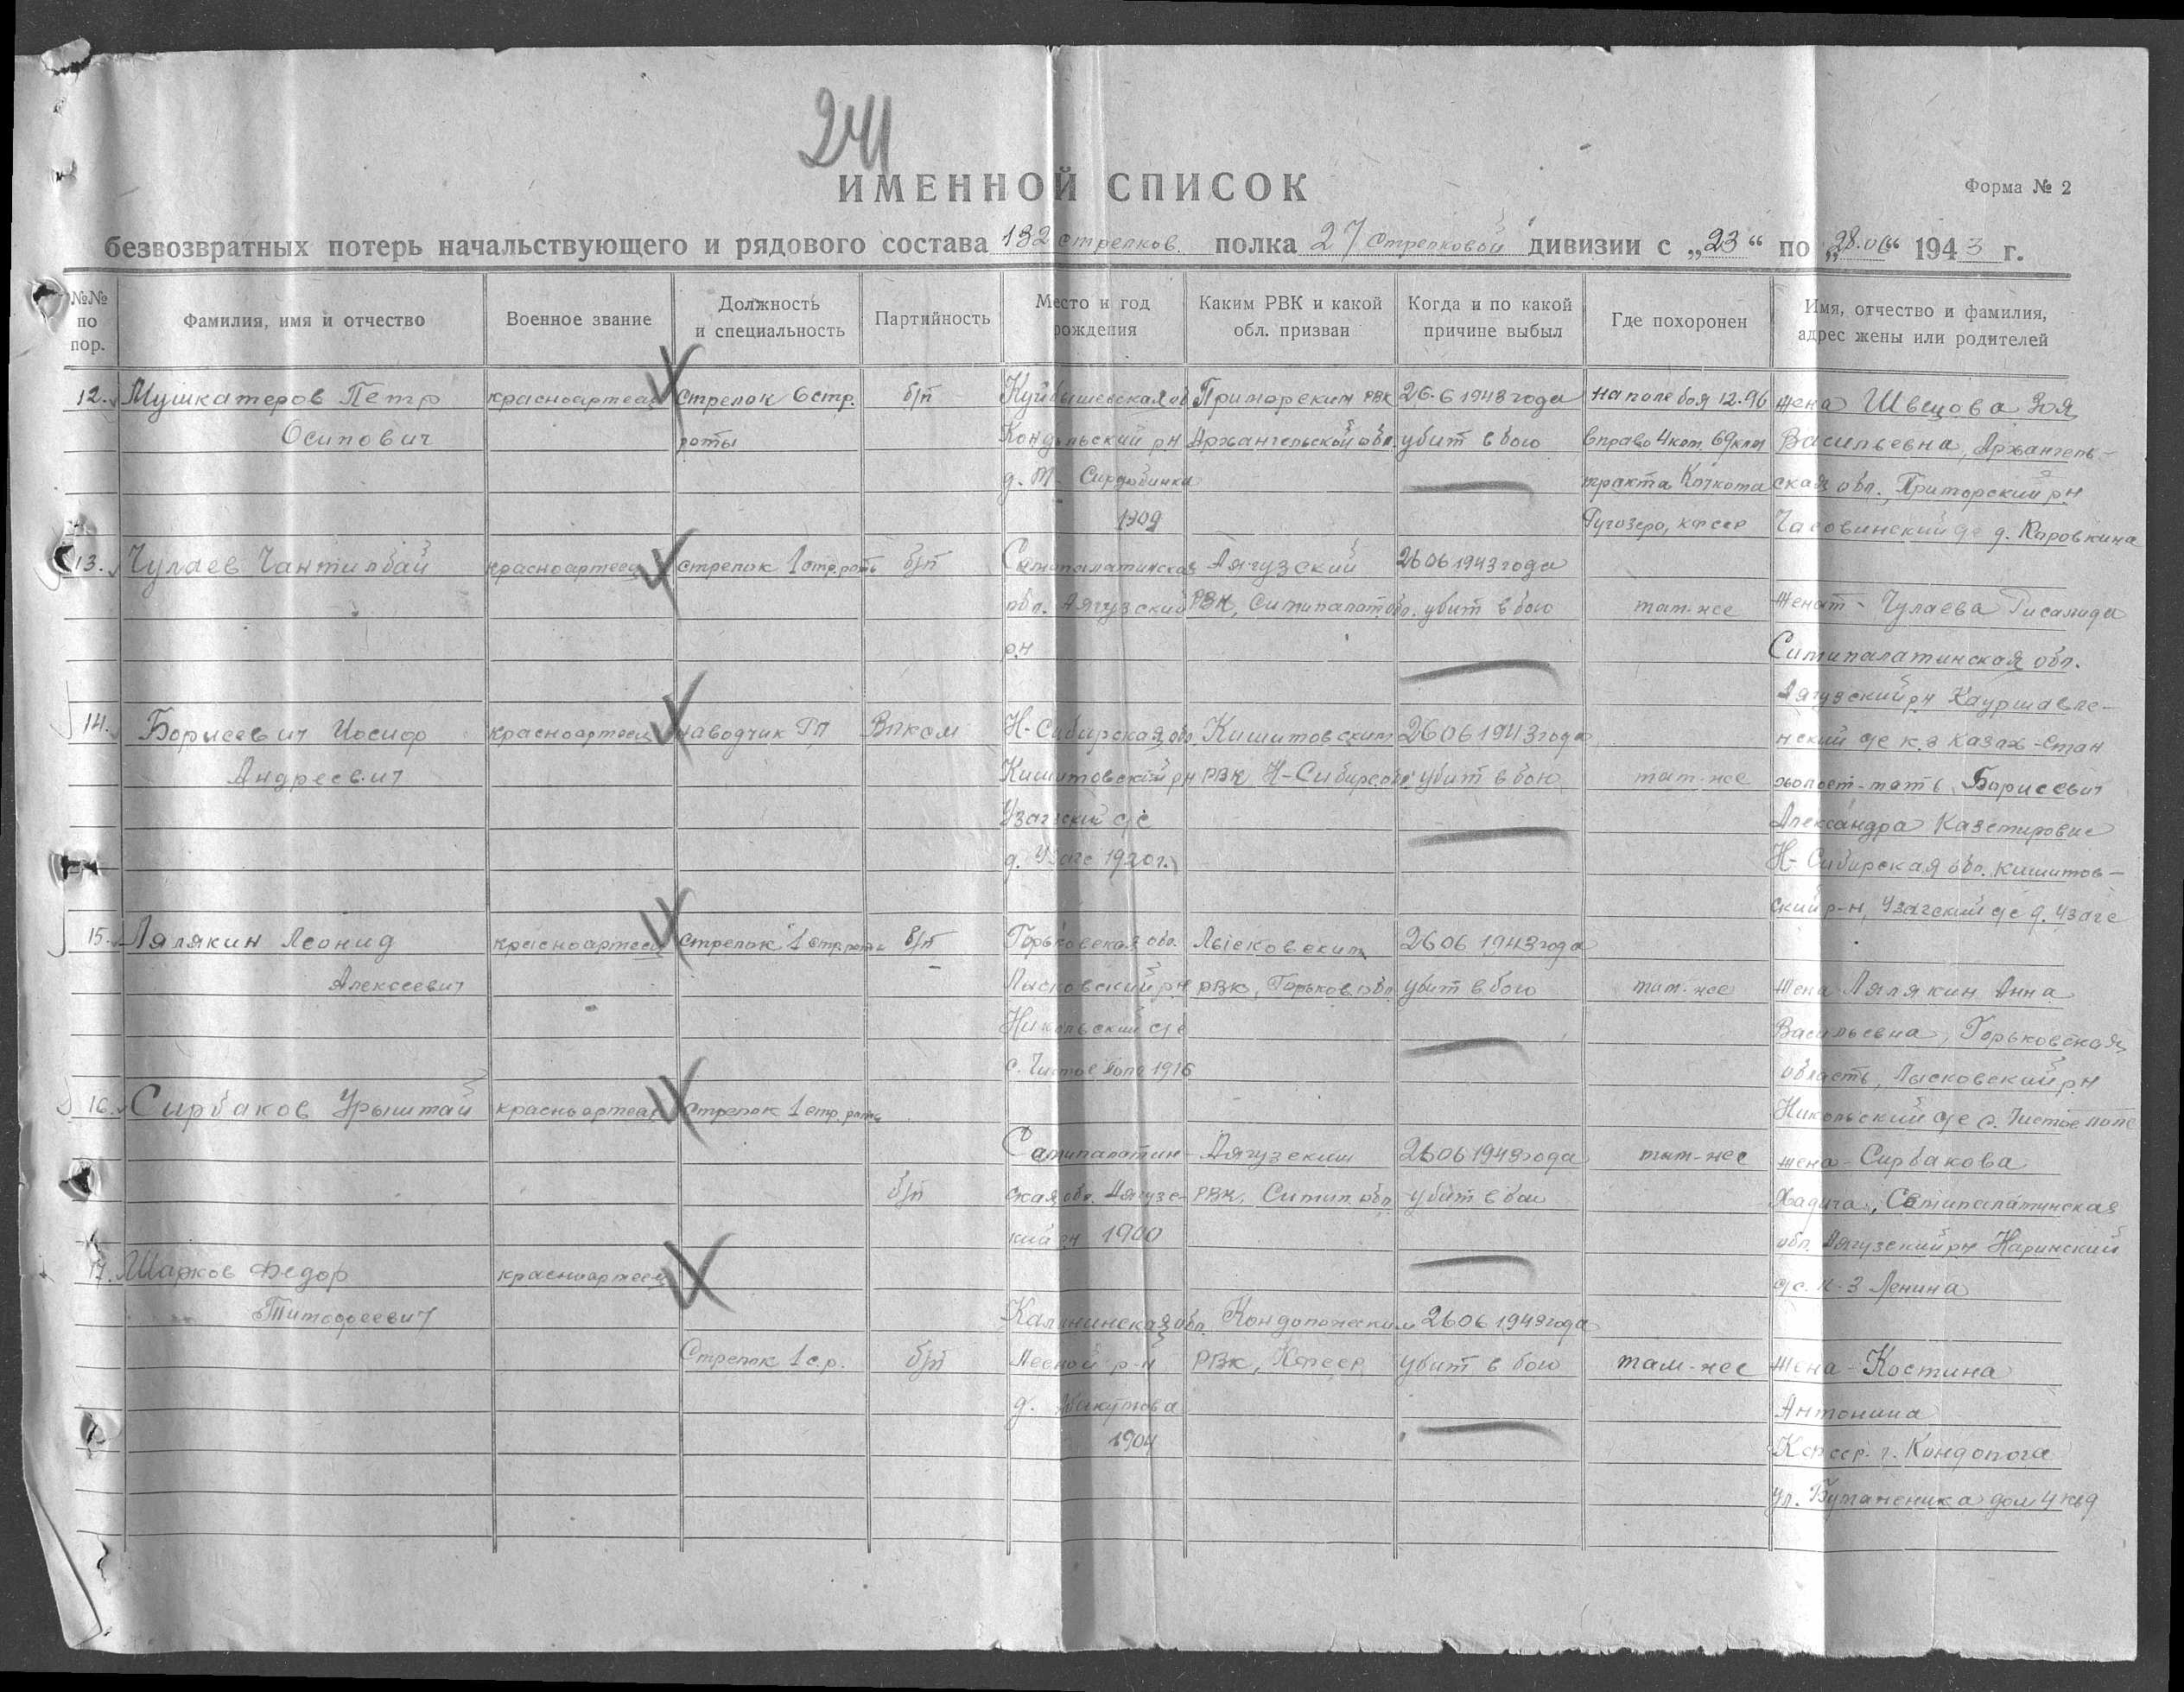 241
ИМЕННОЙ СПИСОК
Форма № 2
безвозвратных потерь начальствующего и рядового состава 132 стрелков. полка 27 Стрелковой дивизии с „23“ по „28.06“ 1943 г.
№№ по пор.
Фамилия, имя и отчество
Военное звание
Должность и специальность
Партийность
Место и год рождения
Каким РВК и какой обл. призван
Когда и по какой причине выбыл
Где похоронен
Имя, отчество и фамилия, адрес жены или родителей
12. Мушкатеров Петр красноармеец Стрелок 6 стр. б/п Куйбышевская об Приморским РВК 26.6 1943 года на поле боя 12.96 жена Швецова Зоя
Осипович роты Кондольский рн Архангельской обл. убит в бою вправо 4 км. 69 клм Васильевна, Архангель-
д. М- Сердобинка тракта Кочкома ская обл., Приморский рн
1909 Ругозеро, кфсср Часовинский с/с д. Коровкина
13. Чулаев Чантилбай красноармеец стрелок 1 стр. роты б/п Семипалатинская Аягузский 26 06 1943 года
обл. Аягузский РВК, Симипалат. обл. убит в бою там-же женат - Чулаева Рисалида
рн Симипалатинская обл.
Аягузский рн
14. Борисевич Иосиф красноармеец наводчик РП Влксм Н-Сибирская обл. Кишитовским 26 06 1943 года с/с к-з Казах-Стан
Андреевич Кишитовский рн РВК Н-Сибирс. обл. убит в бою там-же холост-мать, Борисевич
Узагский с/с Александра Каземировне
д. Узаге 1920 г. Н-Сибирская обл. Кишитов-
ский р-н, Узагский с/с д. Узаге
15. Лялякин Леонид красноармеец стрелок 1 стр. роты б/п Горьковская обл. Лысковским 26 06 1943 года
Алексеевич Лысковский рн РВК, Горьков. обл. убит в бою там-же жена Лялякин Анна
Никольский с/с Васильевна, Горьковская
с. Чистое Поле 1916 область, Лысковский рн
16. Сирбаков Урыштай красноармеец Стрелок 1 стр. роты Никольский с/с с. Чистое поле
Семипалатин- Аягузским 26 06 1943 года там-же жена - Сирбакова
б/п ская обл. Аягузс- РВК, Симип. обл. убит в бою Хадича, Семипалатинская
кий рн 1900 обл. Аягузский рн Наринский
17. Шарков Федор красноармеец с/с. к-з Ленина
Тимофеевич Калининская обл. Кондопожским 26 06 1943 года
Стрелок 1 с.р. б/п Лесной р-н РВК, Кфсср убит в бою там-же жена - Костина
д. Абакумова Антонина
1904 Кфсср. г. Кондопога
ул. дом 4 кв 9